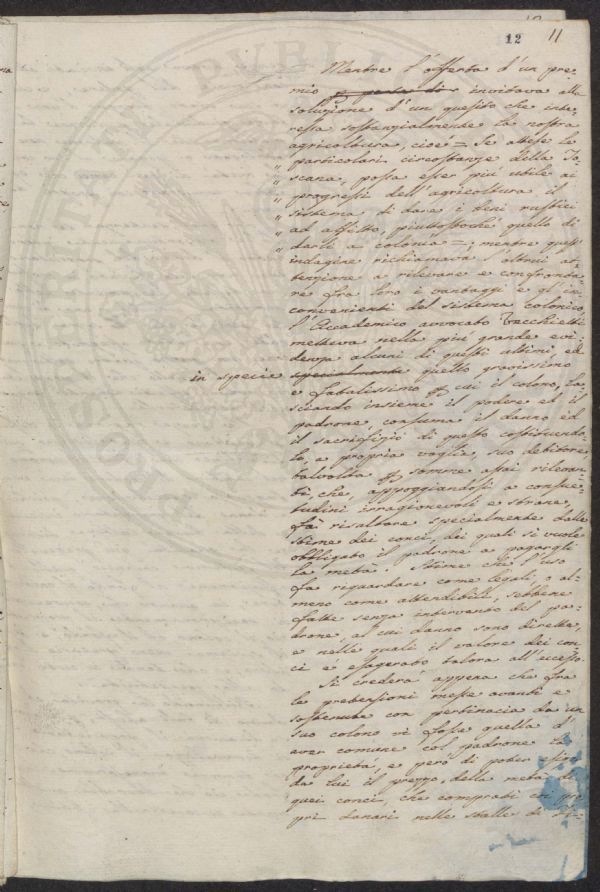 12 11
Mentre l'offerta d'un pre-
mio invitava alla
soluzione d'un quesito che inte-
ressa sostanzialmente la nostra
agricoltura, cioè = Se attese le
" particolari circostanze della To-
" scana, possa esser più utile ai
" progressi dell'agricoltura il
" sistema di dare i beni rustici
" ad affitto, piuttostochè quello di
" darli a colonia =; mentre quest'
indagine richiamava l'altrui at-
tenzione a rilevare e confronta-
re fra loro i vantaggi e gl'in-
convenienti del sistema colonico,
l'Accademico avvocato Vecchietti
metteva nella più grande evi-
denza alcuni di questi ultimi, ed
in specie specialmente quello gravissimo
e fatalissimo per cui il colono, la-
sciando insieme il podere ed il
padrone, consuma il danno ed
il sacrifizio di questo costituendo-
lo, a propria voglia, suo debitore
talvolta per somme assai rilevan-
ti, che, appoggiandosi a consue-
tudini irragionevoli e strane,
fa risaltare specialmente dalle
stime dei conci, dei quali si vuole
obbligato il padrone a pagargli
la metà. Stime che l'uso
fa riguardare come legali, o al-
meno come attendibili, sebbene
fatte senza intervento del pa-
drone, al cui danno sono dirette,
e nelle quali il valore dei con-
ci è esagerato talora all'eccesso.
Si crederà appena che fra
le pretensioni messe avanti e
sostenute con pertinacia da un
suo colono vi fosse quella d'
aver comune col padrone la
proprietà, e però di poter
da lui il prezzo della metà di
quei conci, che comprati coi pro
pri danari nelle stalle di Li-
PROSPERITATI PVBLICAE